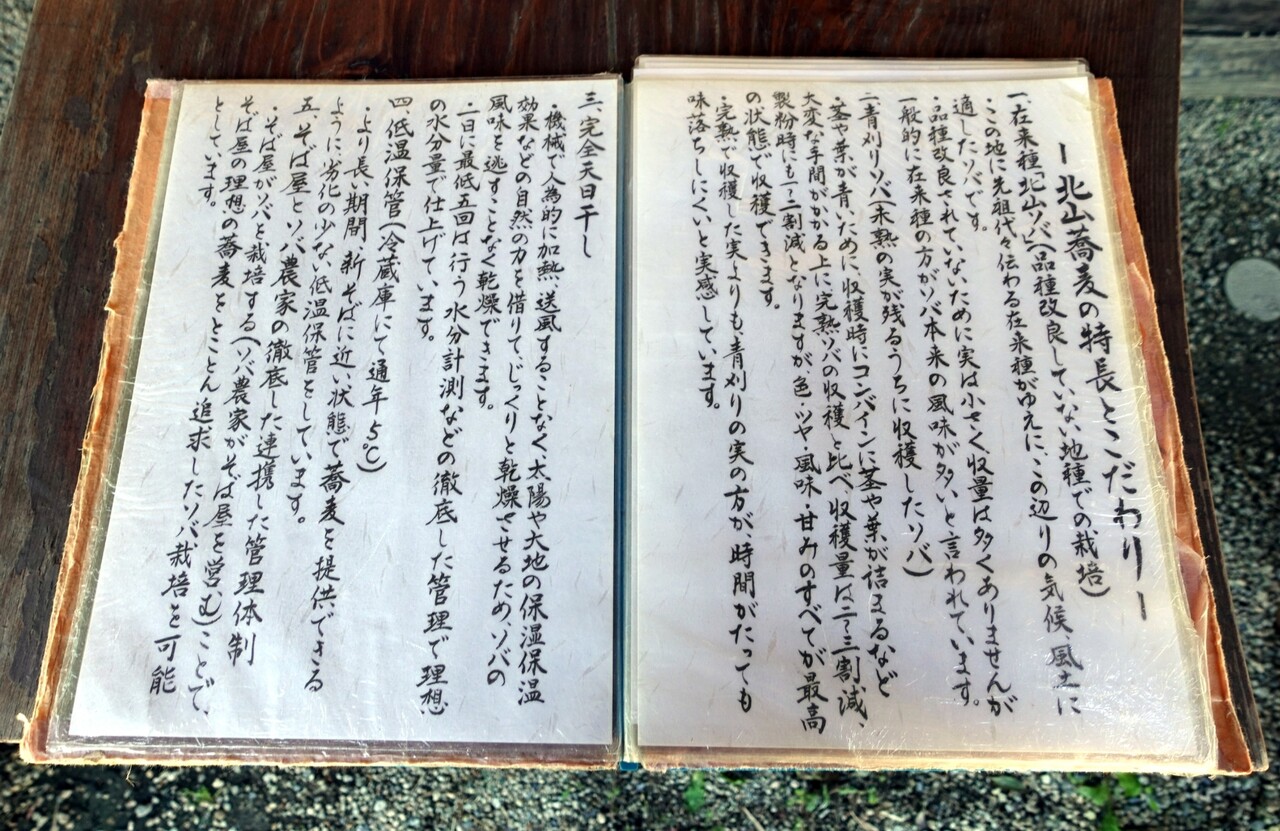 ー北山蕎麦の特長とこだわりー
一、在来種「北山ソバ」(品種改良していない地種での栽培)
・この地に先祖代々伝わる在来種がゆえに、この辺りの気候、風土に
適したソバです。
・品種改良されていないために実は小さく収量は多くありませんが
一般的に在来種の方がソバ本来の風味が多いと言われています。
二、青刈りソバ(未熟の実が残るうちに収穫したソバ)
・茎や葉が青いために、収穫時にコンバインに茎や葉が詰まるなど
大変な手間がかかる上に完熟ソバの収穫と比べ収穫量は二〜三割減、
製粉時にも一〜二割減となりますが、色・ツヤ・風味・甘みのすべてが最高
の状態で収穫できます。
・完熟で収穫した実よりも、青刈りの実の方が、時間がたっても
味落ちしにくいと実感しています。
三、完全天日干し
・機械で人為的に加熱、送風することなく、太陽や大地の保温保温
効果などの自然の力を借りて、じっくりと乾燥させるため、ソバの
風味を逃すことなく乾燥できます。
・一日に最低五回は行う水分計測などの徹底した管理で理想
の水分量で仕上げています。
四、低温保管(冷蔵庫にて通年5℃)
・より長い期間、新そばに近い状態で蕎麦を提供できる
ように、劣化の少ない低温保管をしています。
五、そば屋とソバ農家の徹底した連携した管理体制
・そば屋がソバを栽培する(ソバ農家がそば屋を営む)ことで、
そば屋の理想の蕎麦をとことん追求したソバ栽培を可能
としています。